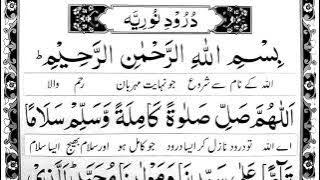 دُرُودِ نُورِیَّه
بِسْمِ اللهِ الرَّحْمٰنِ الرَّحِيْمِ ط
اللہ کے نام سے شروع جو نہایت مہربان رحم والا
اَللّٰهُمَّ صَلِّ صَلٰوةً كَامِلَةً وَّسَلِّمْ سَلَامًا
اے اللہ تو درود نازل کر ایسا درود جو کامل ہو اور سلام بھیج ایسا سلام
تَآمًّا عَلٰى سَيِّدِنَا وَمَوْلَانَا مُحَمَّدِ ۨالَّذِيْ